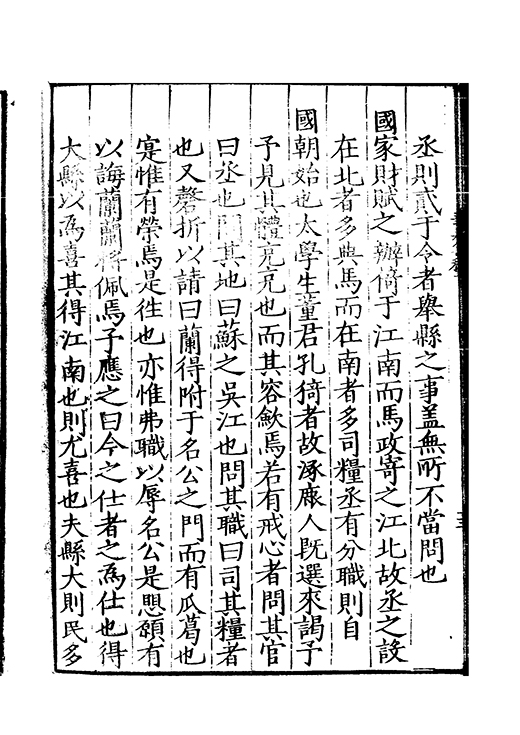 丞則貳于令者舉縣之事盖無所不當問也
國家財賦之辦倚于江南而馬政寄之江北故丞之設
在北者多典馬而在南者多司糧丞有分職則自
國朝始也太學生董君孔猗者故涿廠人旣選來謁予
予見其體充充也而其容歉焉若有戒心者問其官
曰丞也問其地曰蘇之吳江也問其職曰司其糧者
也又磬折以請曰蘭得附于名公之門而有瓜葛也
寔惟有榮焉是徃也亦惟弗職以辱名公是愳頟有
以誨蘭蘭將佩焉予應之曰今之仕者之爲仕也得
大縣以爲喜其得江南也則尤喜也夫縣大則民多